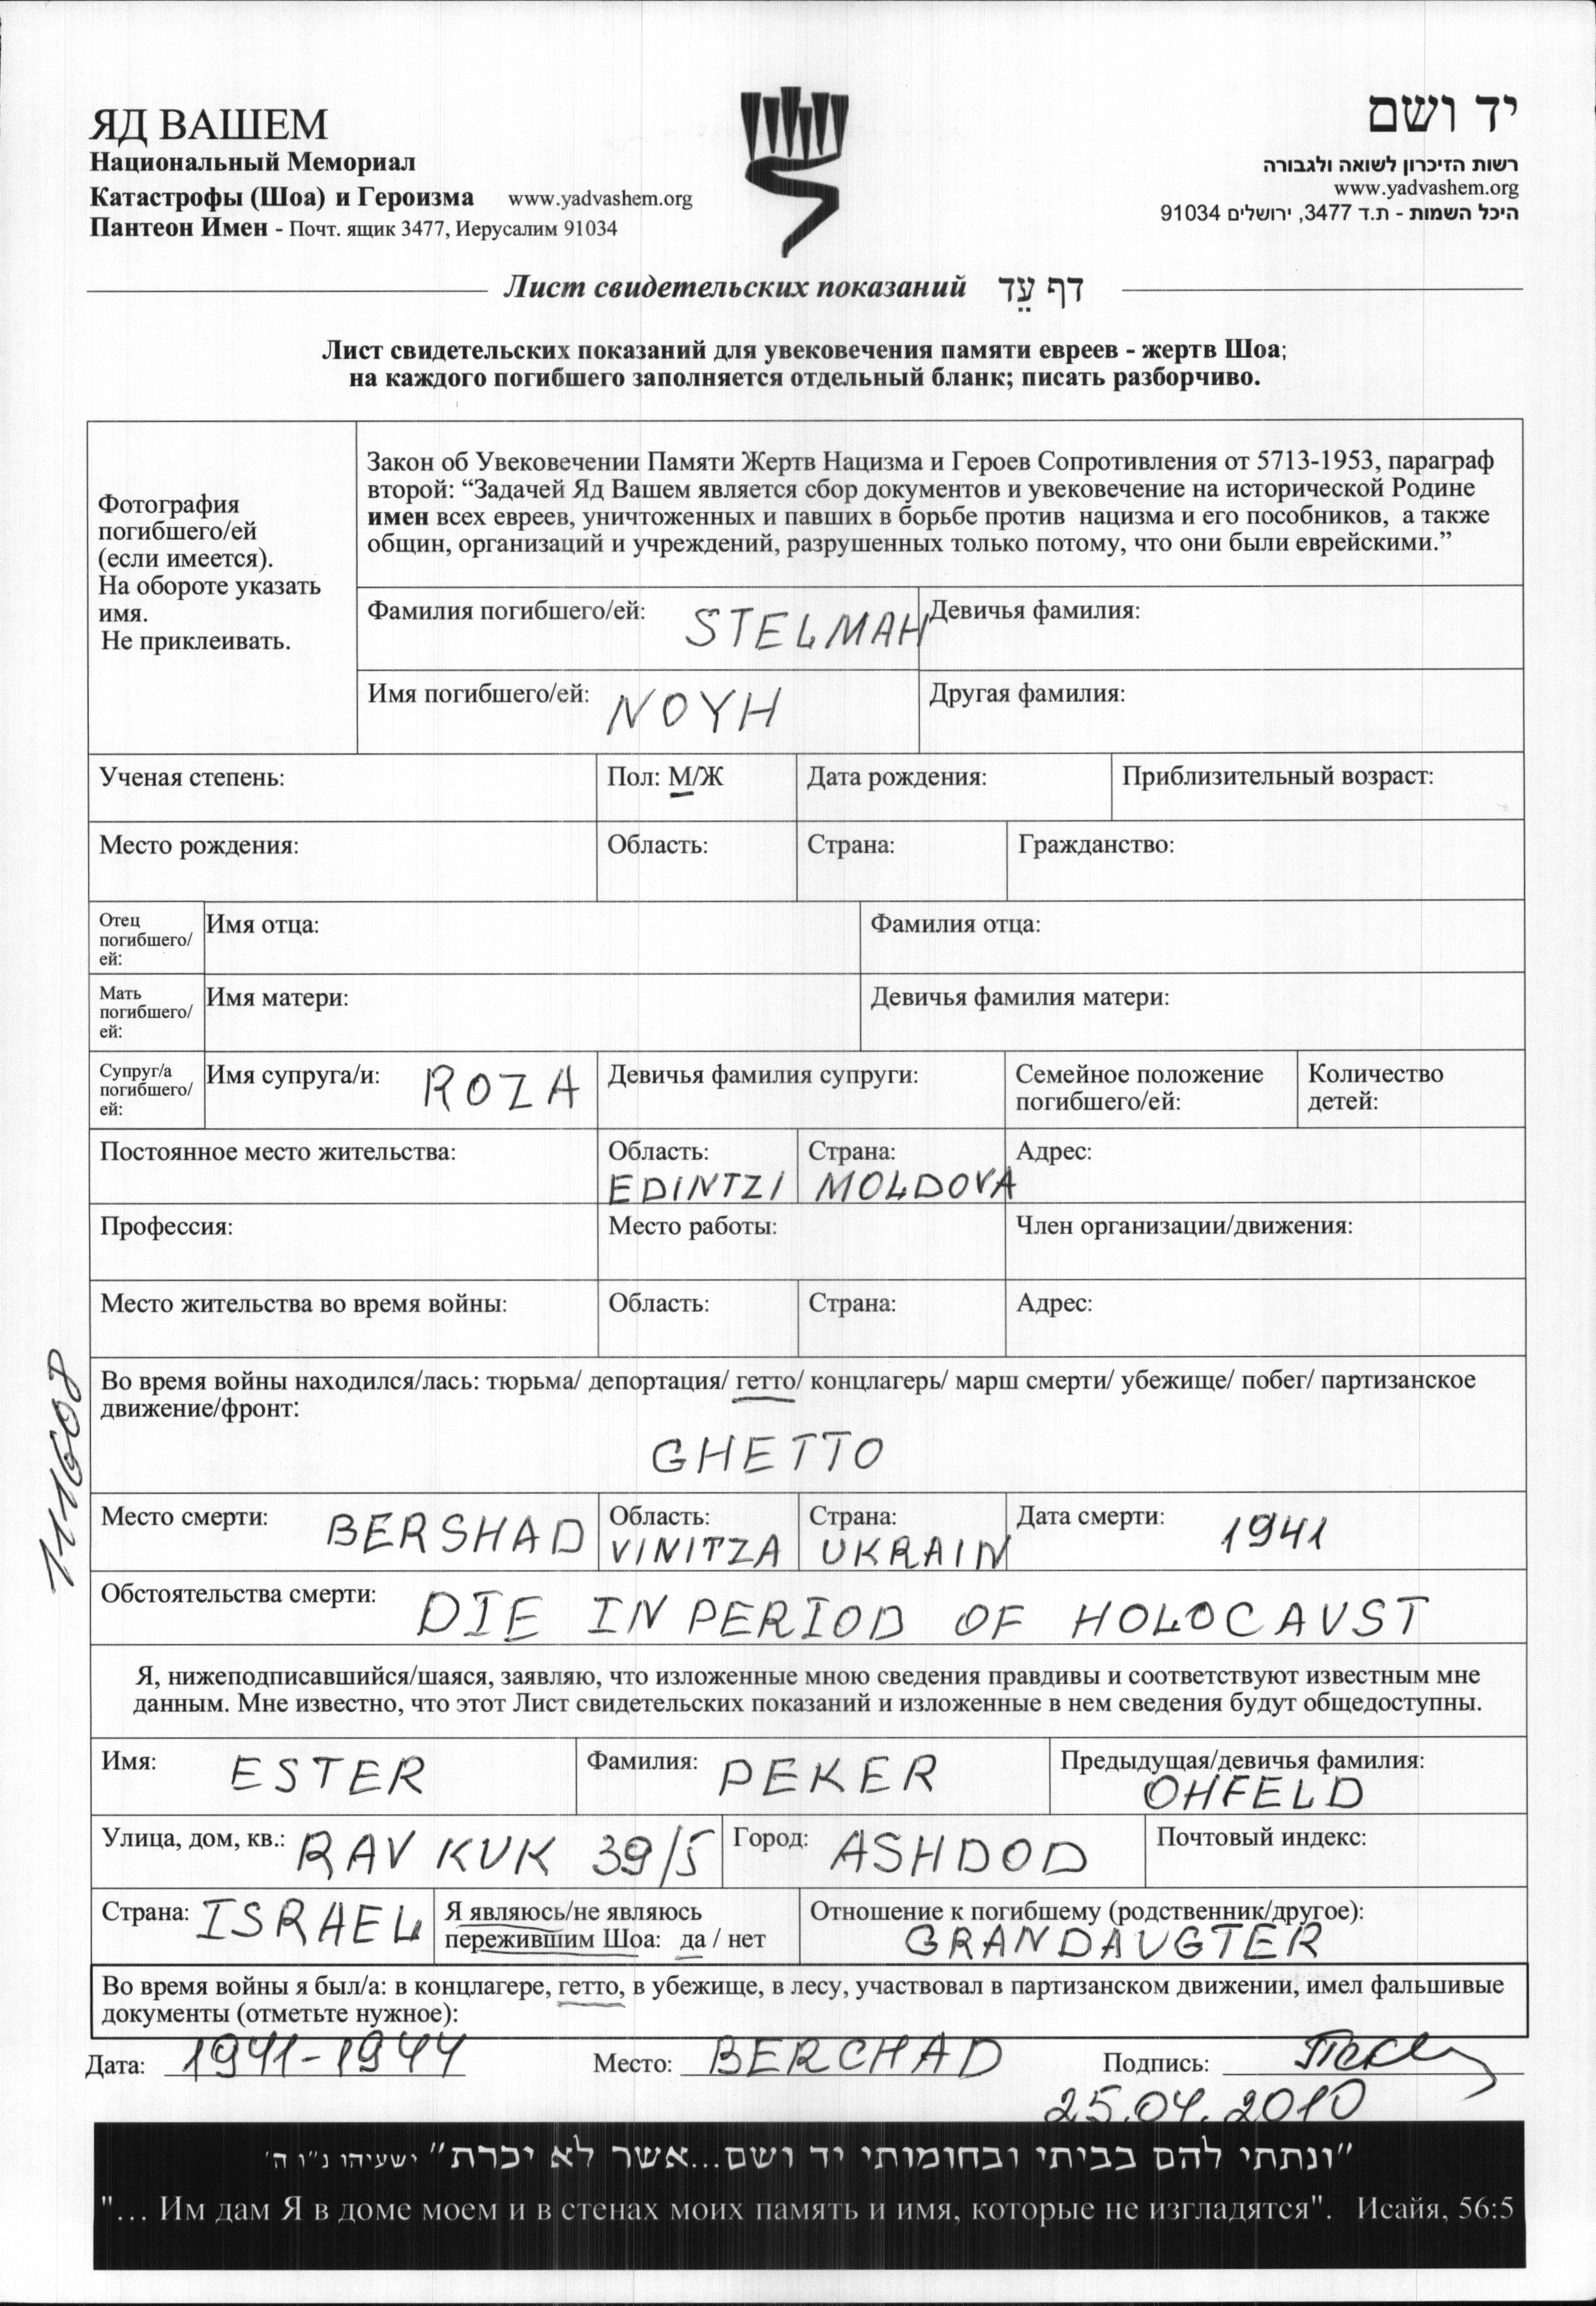 ЯД ВАШЕМ
Национальный Мемориал
Катастрофы (Шоа) и Героизма www.yadvashem.org
Пантеон Имен - Почт. ящик 3477, Иерусалим 91034
יד ושם
רשות הזיכרון לשואה ולגבורה
www.yadvashem.org
היכל השמות - ת.ד 3477, ירושלים 91034
Лист свидетельских показаний דף עֵד
Лист свидетельских показаний для увековечения памяти евреев - жертв Шоа;
на каждого погибшего заполняется отдельный бланк; писать разборчиво.
Фотография
погибшего/ей
(если имеется).
На обороте указать
имя.
Не приклеивать.
Закон об Увековечении Памяти Жертв Нацизма и Героев Сопротивления от 5713-1953, параграф
второй: “Задачей Яд Вашем является сбор документов и увековечение на исторической Родине
имен всех евреев, уничтоженных и павших в борьбе против нацизма и его пособников, а также
общин, организаций и учреждений, разрушенных только потому, что они были еврейскими.”
Фамилия погибшего/ей: STELMAH Девичья фамилия:
Имя погибшего/ей: NOYH Другая фамилия:
Ученая степень: Пол: М/Ж Дата рождения: Приблизительный возраст:
Место рождения: Область: Страна: Гражданство:
Отец
погибшего/
ей:
Имя отца: Фамилия отца:
Мать
погибшего/
ей:
Имя матери: Девичья фамилия матери:
Супруг/а
погибшего/
ей:
Имя супруга/и: ROZA Девичья фамилия супруги:
Семейное положение
погибшего/ей:
Количество
детей:
Постоянное место жительства: Область: EDINTZI Страна: MOLDOVA Адрес:
Профессия: Место работы: Член организации/движения:
Место жительства во время войны: Область: Страна: Адрес:
Во время войны находился/лась: тюрьма/ депортация/ гетто/ концлагерь/ марш смерти/ убежище/ побег/ партизанское
движение/фронт:
GHETTO
111608
Место смерти: BERSHAD Область: VINITZA Страна: UKRAIN Дата смерти: 1941
Обстоятельства смерти: DIE IN PERIOD OF HOLOCAUST
Я, нижеподписавшийся/шаяся, заявляю, что изложенные мною сведения правдивы и соответствуют известным мне
данным. Мне известно, что этот Лист свидетельских показаний и изложенные в нем сведения будут общедоступны.
Имя: ESTER Фамилия: PEKER Предыдущая/девичья фамилия: OHFELD
Улица, дом, кв.: RAV KUK 39/5 Город: ASHDOD Почтовый индекс:
Страна: ISRAEL
Я являюсь/не являюсь
пережившим Шоа: да / нет
Отношение к погибшему (родственник/другое):
GRANDAUGTER
Во время войны я был/а: в концлагере, гетто, в убежище, в лесу, участвовал в партизанском движении, имел фальшивые
документы (отметьте нужное):
Дата: 1941-1944 Место: BERCHAD Подпись:
25.04.2010
"ונתתי להם בביתי ובחומותי יד ושם...אשר לא יכרת" ישעיהו נ"ו ה'
"... Им дам Я в доме моем и в стенах моих память и имя, которые не изгладятся". Исайя, 56:5